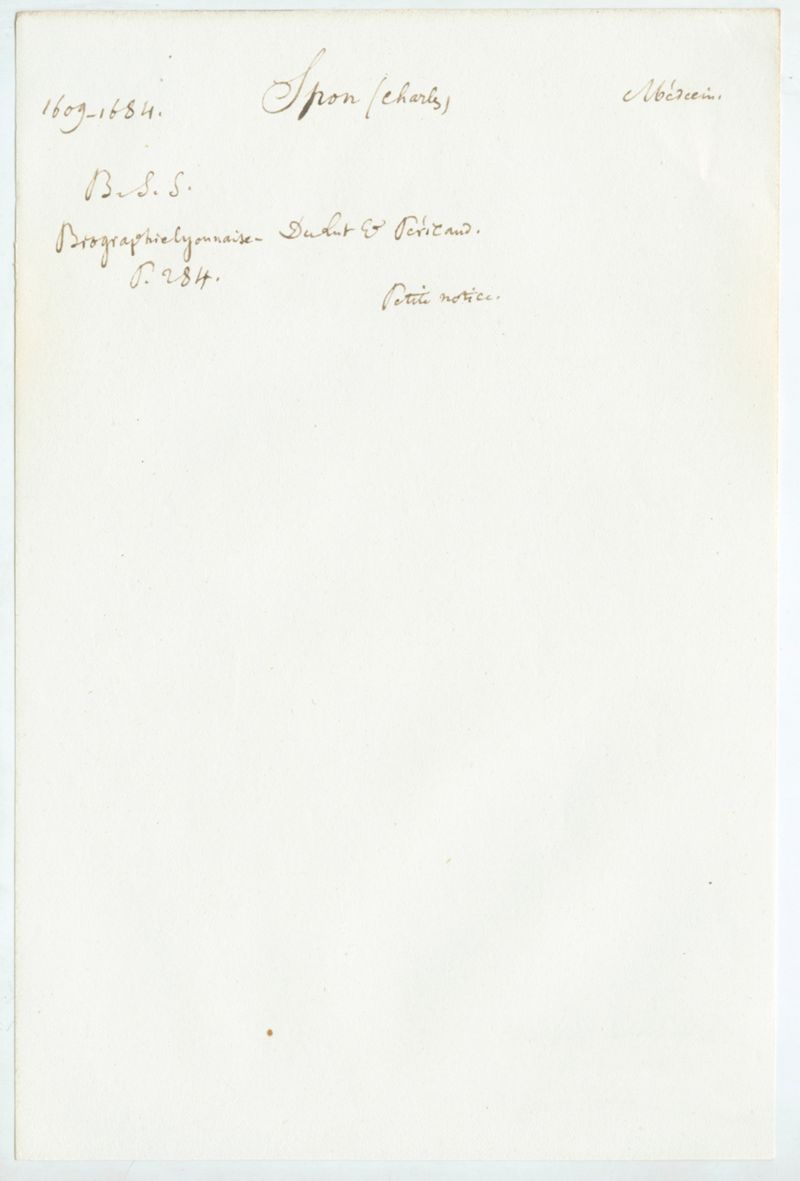 1609-1684. Spon (Charles) Médecin.
B. S. S.
Biographie lyonnaise - Dulut & Péricaud.
P. 284.
Petite notice.